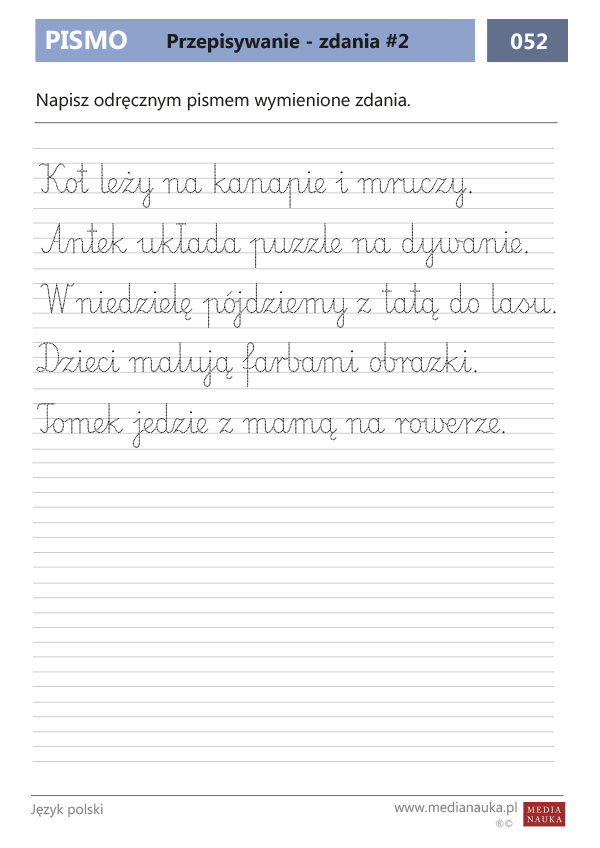 PISMO Przepisywanie - zdania #2 052
Napisz odręcznym pismem wymienione zdania.
Kot leży na kanapie i mruczy.
Antek układa puzzle na dywanie.
W niedzielę pójdziemy z tatą do lasu.
Dzieci malują farbami obrazki.
Tomek jedzie z mamą na rowerze.
Język polski www.medianauka.pl MEDIA
NAUKA
®©